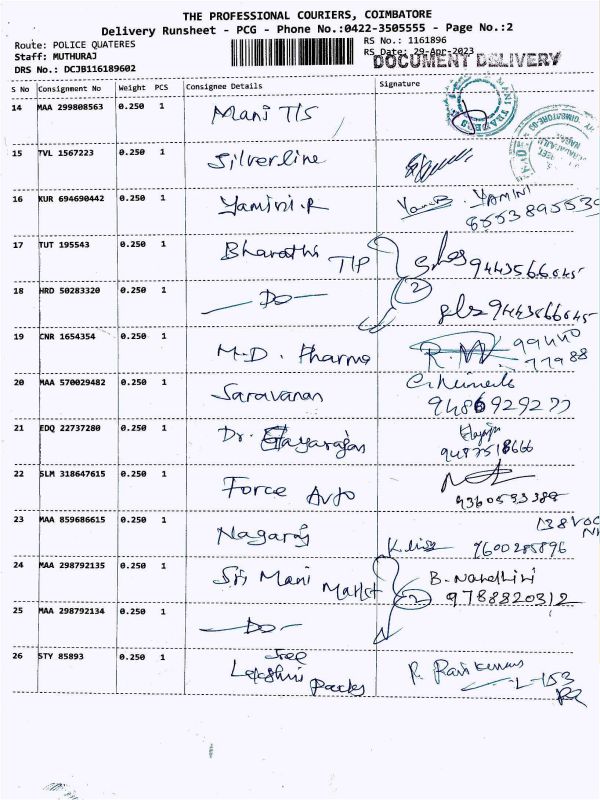 THE PROFESSIONAL COURIERS, COIMBATORE
Delivery Runsheet - PCG - Phone No.:0422-3505555 - Page No.:2
Route: POLICE QUATERES
RS No.: 1161896
Staff: MUTHURAJ
RS Date: 29-Apr-2023
DRS No.: DCJB116189602
DOCUMENT DELIVERY
S No Consignment No Weight PCS Consignee Details Signature
14 MAA 299808563 0.250 1 Mani T/S
15 TVL 1567223 0.250 1 Silverline
16 KUR 694690442 0.250 1 Yamini.R YAMINI
8553895539
17 TUT 195543 0.250 1 Bharathi TIP 9443566045
18 HRD 50283320 0.250 1 — Do — 2 9443566045
19 CNR 1654354 0.250 1 M.D. Pharma R.M. 99440
77988
20 MAA 570029482 0.250 1 Saravanan
9486929277
21 EDQ 22737280 0.250 1 Dr.
9487518666
22 SLM 318647615 0.250 1 Force Auto
9360593389
23 MAA 859686615 0.250 1 Nagaraj 9600285896
24 MAA 298792135 0.250 1 Sri Mani B. Nandhini
2 9788820312
25 MAA 298792134 0.250 1 — Do —
26 STY 85893 0.250 1 Sree
Lakshmi Packs R. Ravikumar
L-153